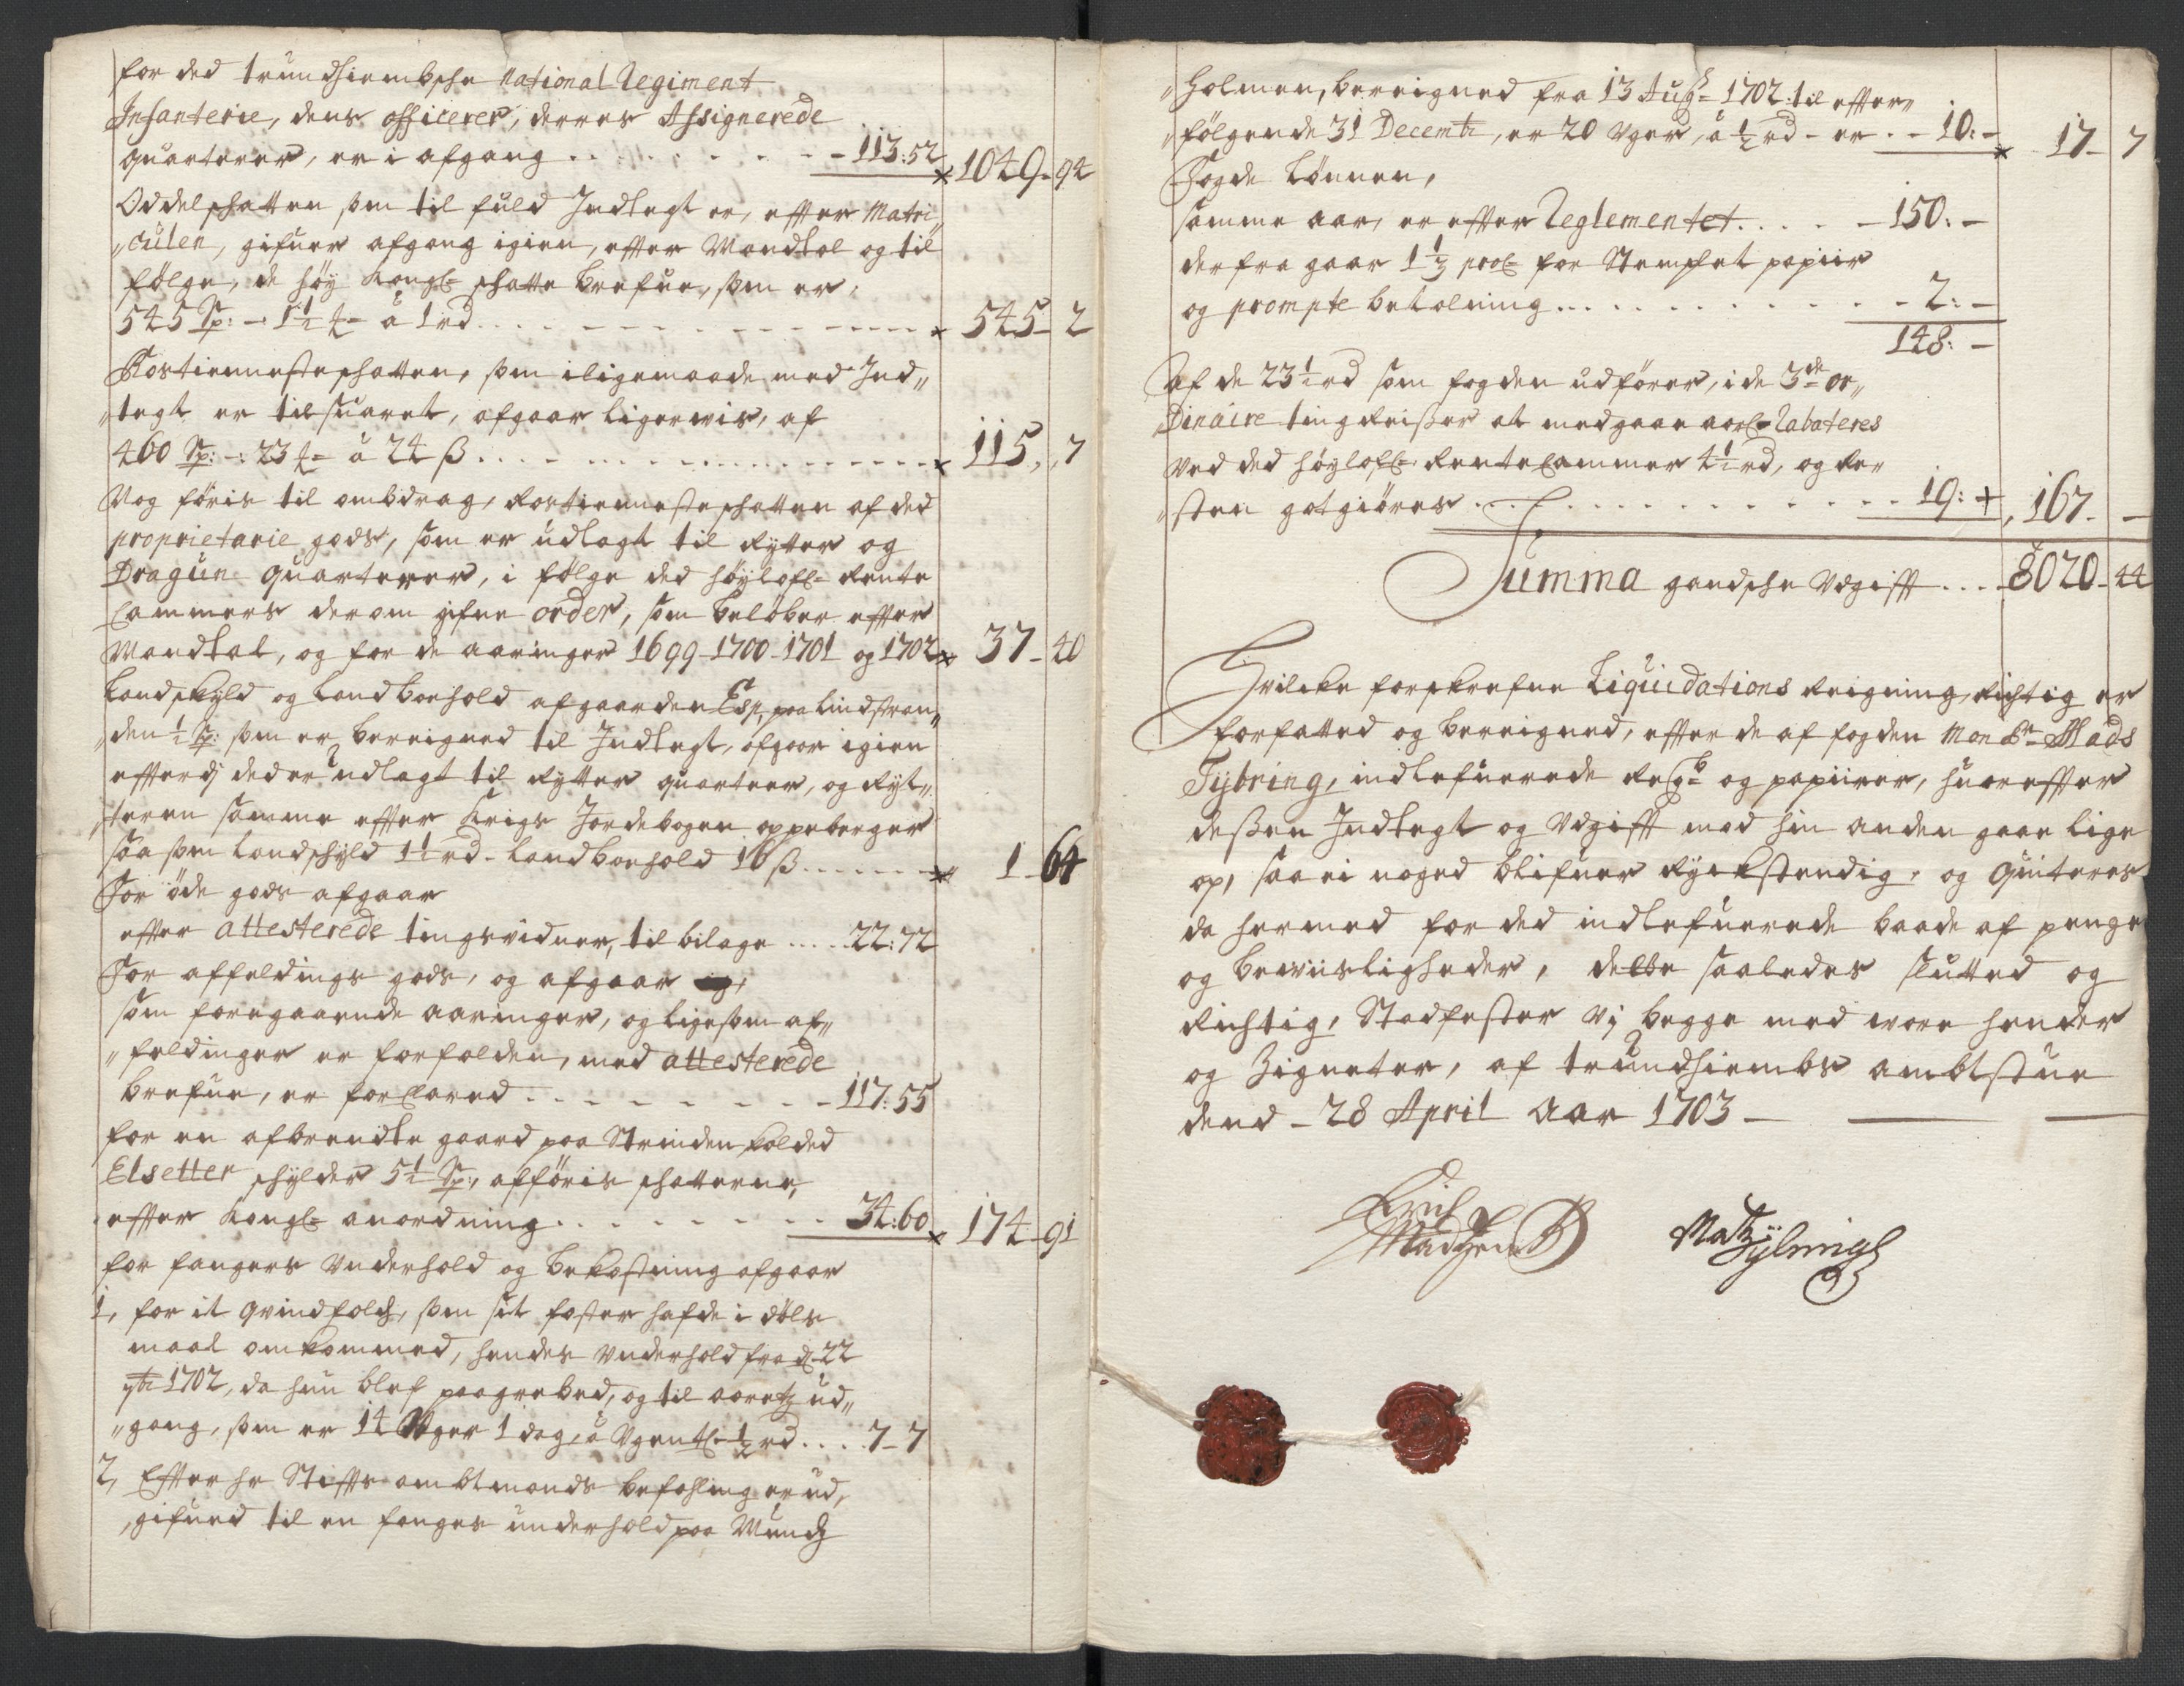 for ded trundhiembsche National Regiment
Infanterie, dens officerer, derres Assignerede
quarterer, er i afgang . . . . . . . . - 113:52 × 1049 - 94
Oddelschatten som til fuld Indtegt er, effter Matri„
„culen, gifuer afgang igien, effter Mandtal og til
følge, de høy Kongl= schatte brefue, som er,
545 Sp: -: 1½ = å 1 rd . . . . . . . × 545 - 2
Rostiennesteschatten, som iligemaade med Ind„
„tegt er tilsuaret, afgaar ligerwis, af
460 Sp: -: 23 = å 24 ß . . . . . . . × 115, „ 7
Nog føris til ombdrag, Rostiennesteschatten af ded
proprietarie gods, som er udlagt til Rytter og
Dragun quarterer, i følge ded høylofl= Rente
Cammers derom gifne order, som beløber effter
Mandtal, og for de aaringer 1699 - 1700 - 1701 og 1702 × 37 - 40
Landskyld og Landboehold af gaarden Esp, paa Lindstran„
„den ½ Sp: som er bereigned til Indtegt, afgaar igien
efferdj ded er udlagt til Rytter quarteer, og Ryt„
„teren samme effter Krigs Jordebogen oppeberger
saa som Landschyld 1½ rd - Landboehold 16 ß . . . . . × 1 - 64
For øde gods afgaar
effter attesterede tingsvidner, til bilage . . . . . 22:72
For affeldings gods, og afgaar
som foregaaende aaringer, og ligesom af„
„feldinger er forfalden, med attesterede
brefue, er forClared . . . . . . . . - 117:55
for en afbrendte gaard paa Strinden kolded
Elsetter schylder 5½ Sp:, afføris schatterne,
effter Kongl= anordning . . . . . . . 34:60 × 174 - 91
for fangers Underhold og bekostning afgaar
1, for it qvindfolch, som sit foster hafde i døls
maal omkommed, hendes Underhold fra d= 22
7br 1702, da hun blef paagrebed, og til aaretz ud„
„gang, som er 14 Uger 1 dag, å Ugentl= ½ rd . . . . 7 - 7
2, Effter hr Stiffts ambtmands befahling er ud„
„gifued til en fanges underhold paa Munch
„Holmen, bereigned fra 13 Aug= 1702. til effter„
„følgende 31 Decembr, er 20 Uger, å ½ rd - er . . - 10: - × 17 - 7
Fogde Lønnen,
samme aar, er effter Reglementet . . . . - 150: -
der fra gaar 1⅓ proC= for Stemplet papiir
og prompte betalning . . . . . . . . . - 2: -
148: -
Af de 23½ rd som fogden udfører, i de 3de or„
Dinaire tingreisser at medgaar aarl= Rabateres
ved ded høylofl= RenteCammer 4½ rd, og Re„
„sten gotgiøres . . . . . . . . . . 19: + , 167 - -
Summa gandsche Udgifft . . . 8020 - 44
Hvilcke forskrefne Liquidations Reigning, Richtig er
forfatted og bereigned, effter de af fogden Monsr Mads
Tybring, indlefuerede Regsb= og papiirer, huoreffter
dessen Indtegt og Udgifft mod hin anden gaar lige
op, saa ei noged blifuer Ryckstendig, og Quiteres
da hermed for ded indlefuerede baade af penge
og bewiisligheder, dette saaledes slutted og
Richtig, Stadfester vj begge med wore hender
og Zigneter, af trundhiembs ambtstue
dend - 28 April Aar 1703 -